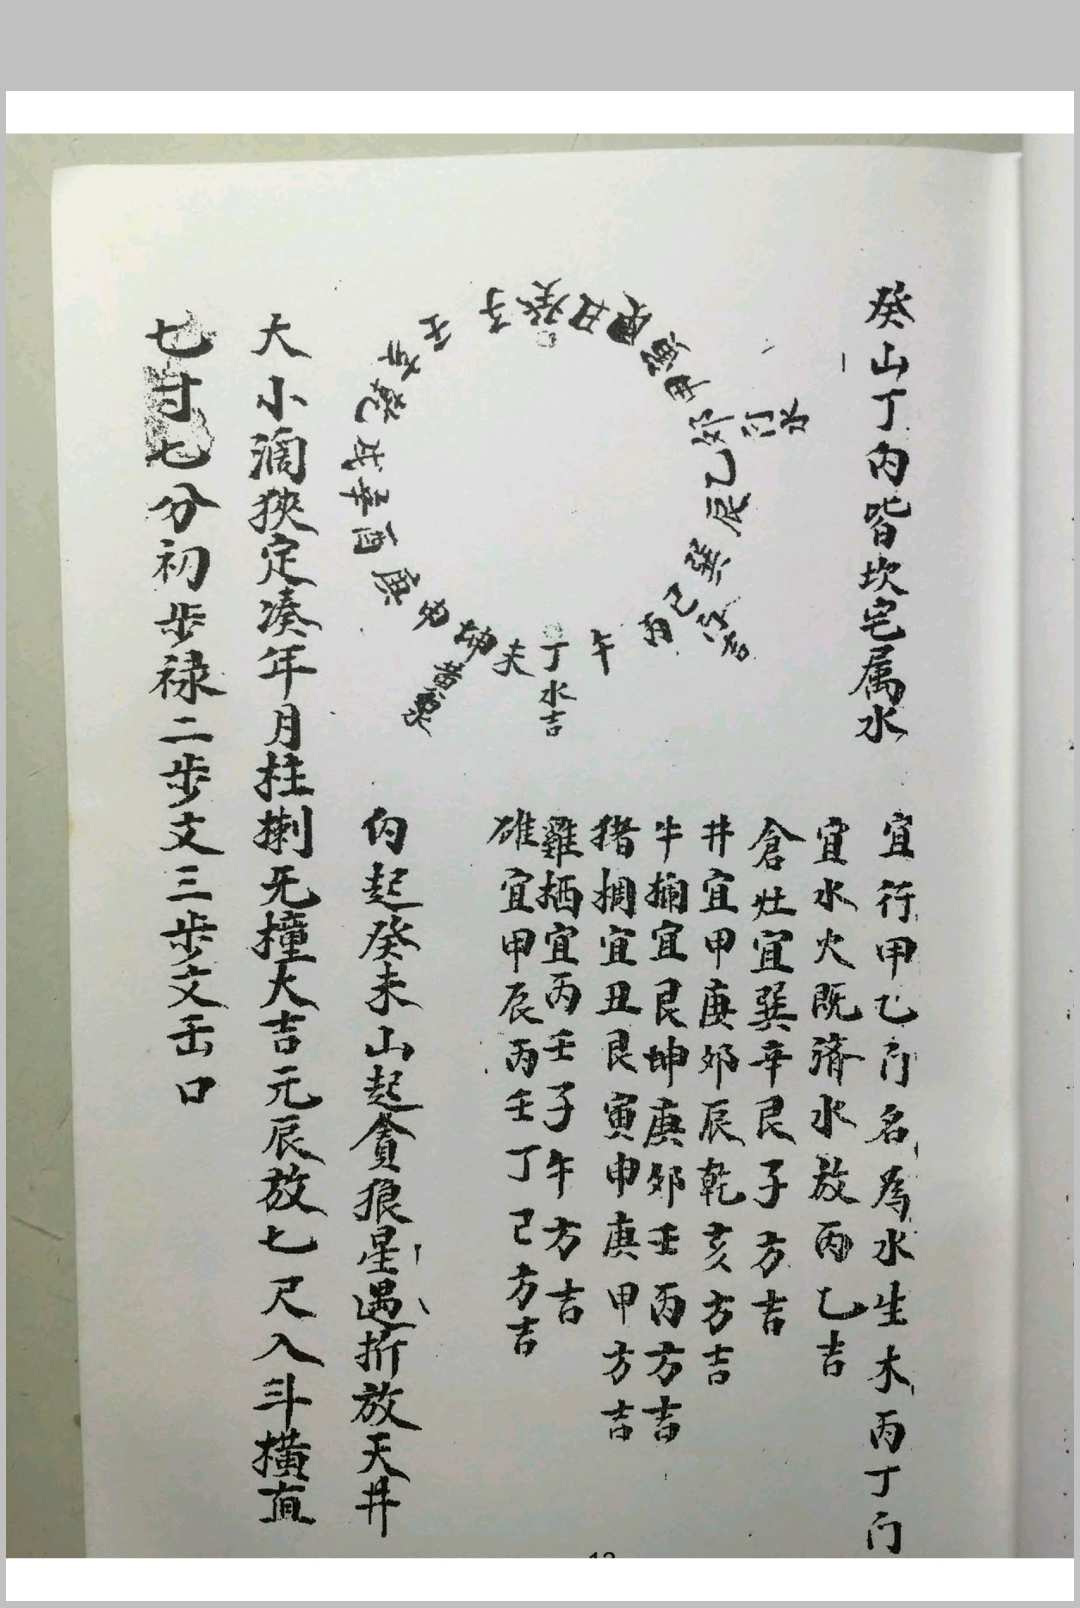 癸山丁内皆坎宅属水
宜行甲乙门名為水生木丙丁门
宜水火既济水放丙乙吉
倉灶宜巽辛艮子方吉
井宜甲庚卯辰乾亥方吉
牛欄宜艮坤庚卯壬丙方吉
猪椆宜丑艮寅申庚甲方吉
雞栖宜丙壬子午方吉
碓宜甲辰丙壬丁己方吉
子癸丑艮寅甲卯乙辰巽巳丙午丁未坤庚酉辛戌乾亥壬
水吉
黄泉
内起癸未山起貪狼星遇折放天井
大小濶狹定凑年月柱捌无撞大吉元辰放七尺入斗橫直
七寸七分初步禄二步文三步文
口